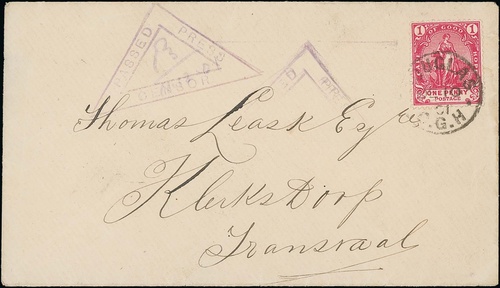 PASSED PRESS CENSOR
1 CAPE OF GOOD HOPE 1
ONE PENNY
POSTAGE
C.G.H
Thomas Leask Esqre
Klerksdorp
Transvaal